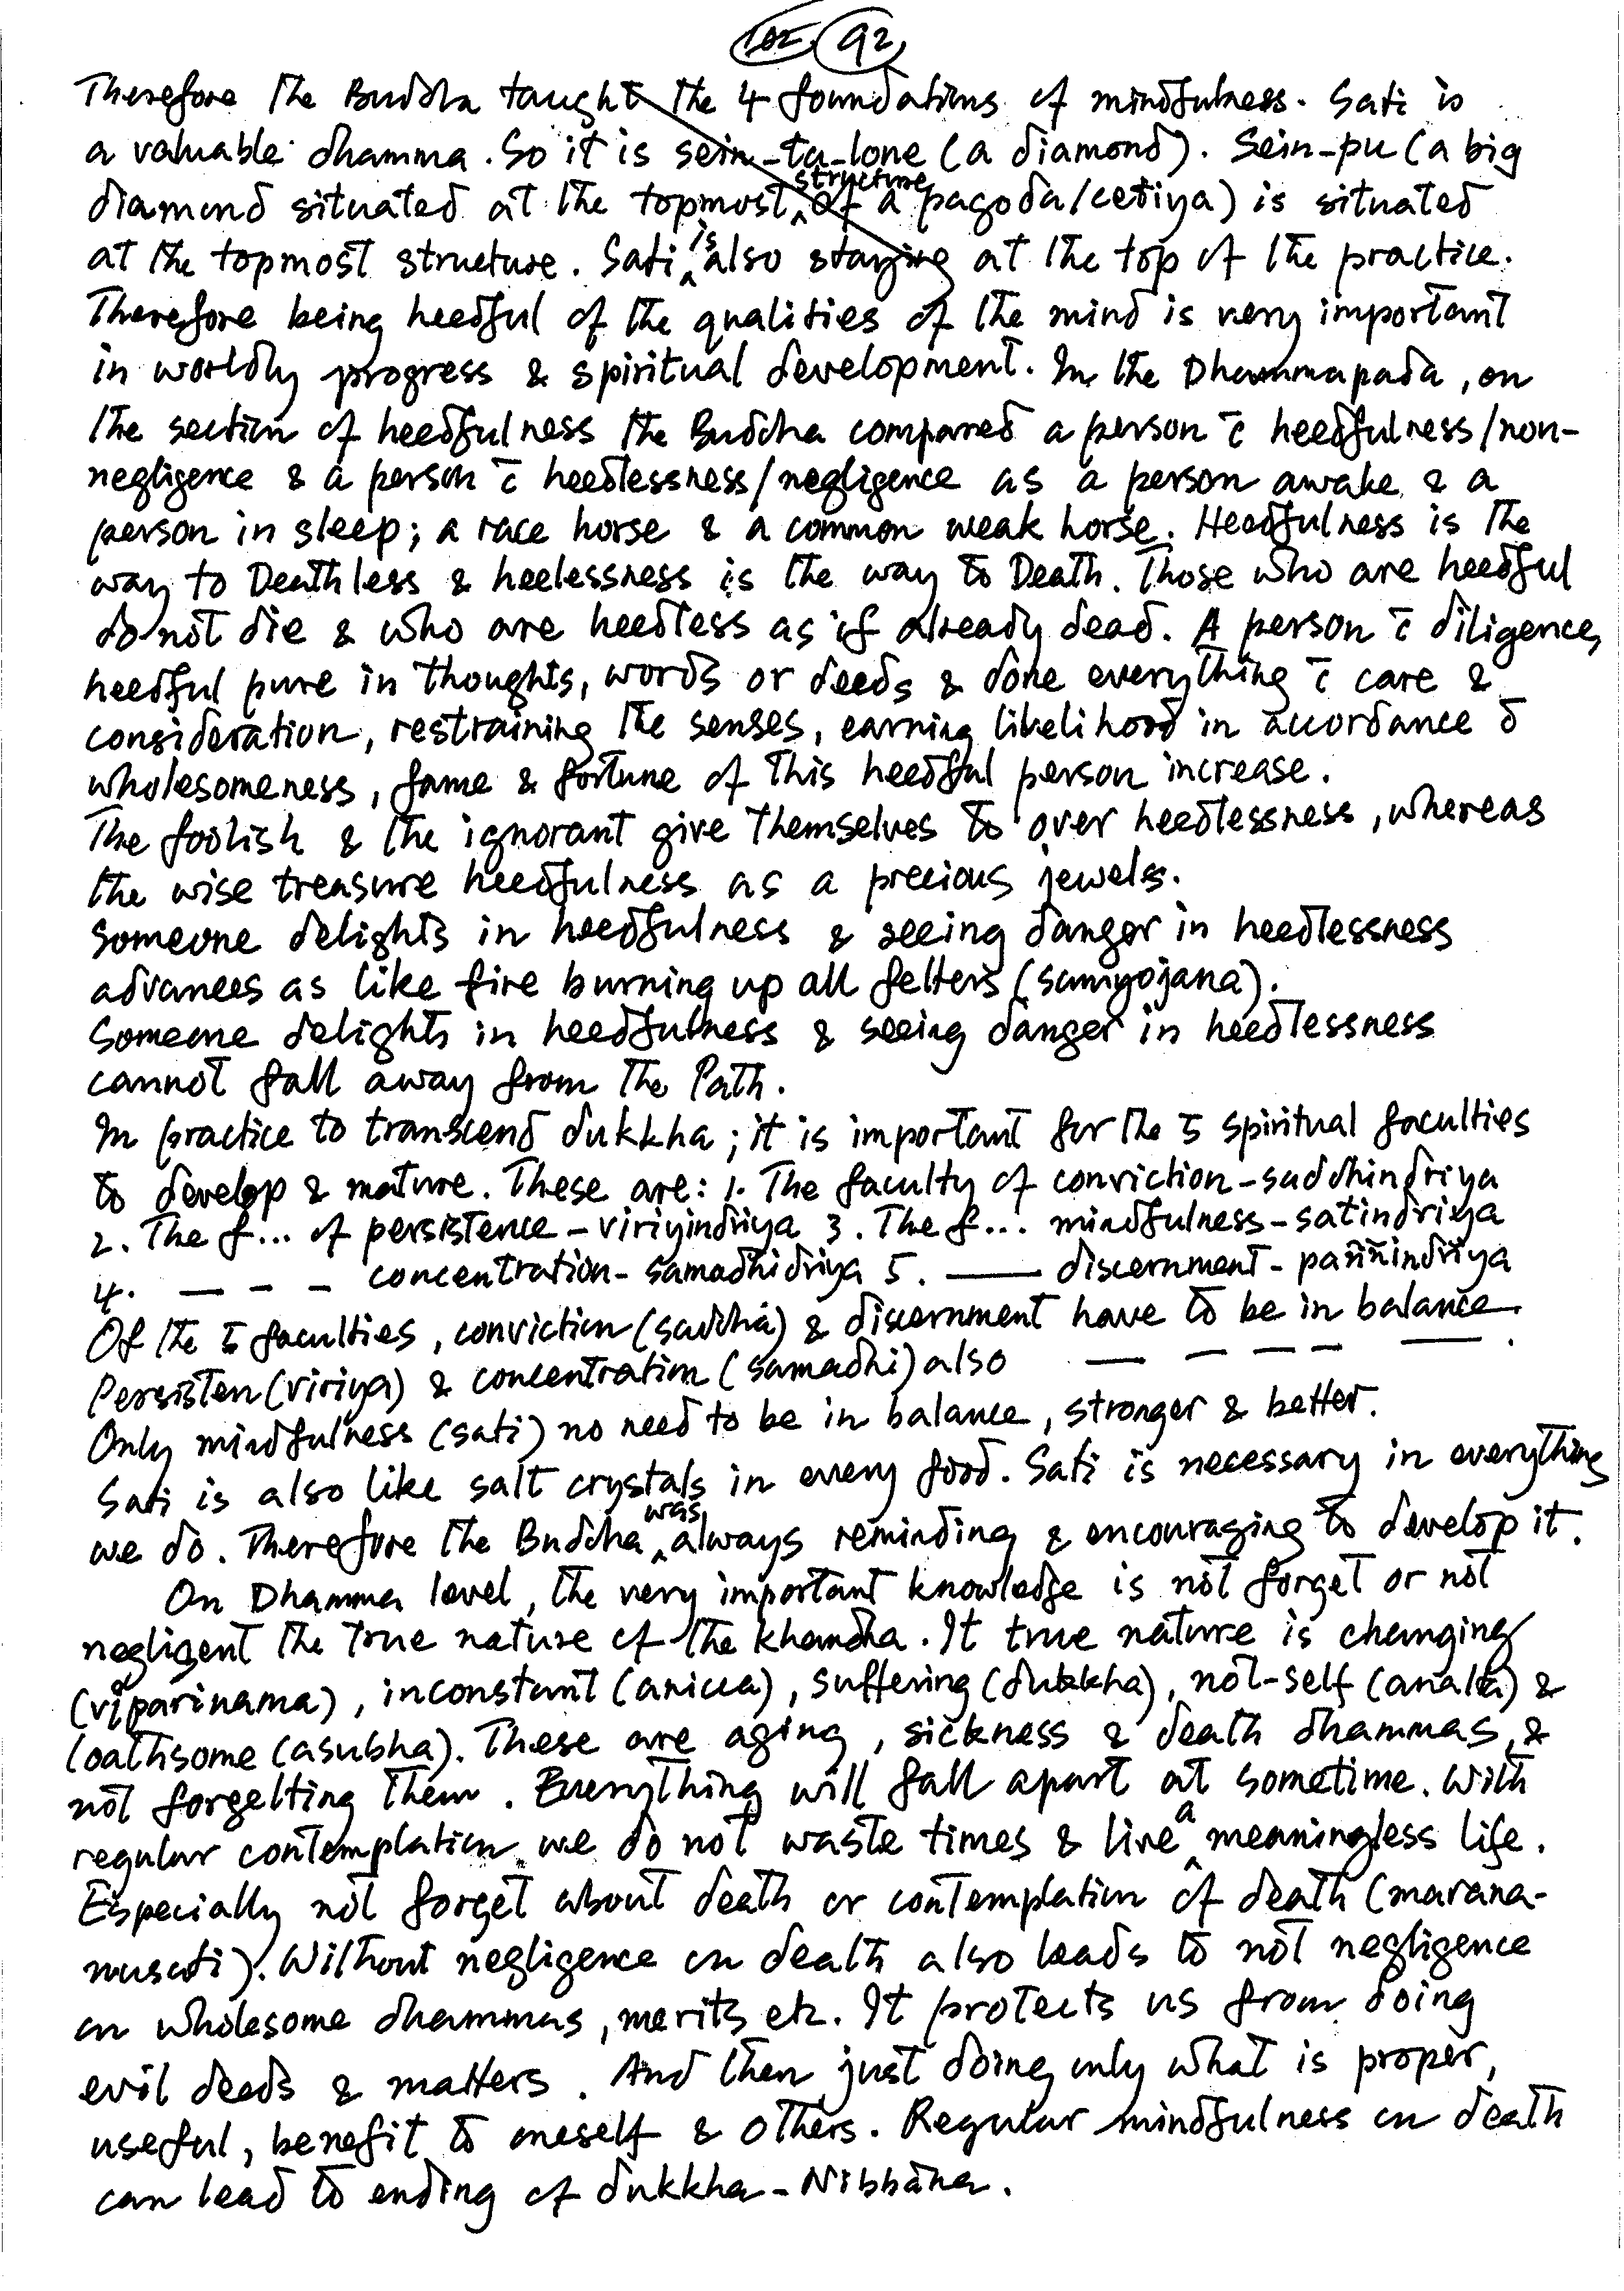 102 92
Therefore the Buddha taught the 4 foundations of mindfulness. Sati is
a valuable dhamma. So it is sein-ta-lone (a diamond). Sein-pu (a big
diamond situated at the topmost structure of a pagoda/cetiya) is situated
at the topmost structure. Sati is also staying at the top of the practice.
Therefore being heedful of the qualities of the mind is very important
in worldly progress & spiritual development. In the Dhammapada, on
the section of heedfulness the Buddha compared a person c̄ heedfulness/non-
negligence & a person c̄ heedlessness/negligence as a person awake & a
person in sleep; a race horse & a common weak horse. Heedfulness is the
way to Deathless & heelessness is the way to Death. Those who are heedful
do not die & who are heedless as if already dead. A person c̄ diligence,
heedful pure in thoughts, words or deeds & done everything c̄ care &
consideration, restraining the senses, earning likelihood in accordance c̄
wholesomeness, fame & fortune of this heedful person increase.
The foolish & the ignorant give themselves to over heedlessness, whereas
the wise treasure heedfulness as a precious jewels.
Someone delights in heedfulness & seeing danger in heedlessness
advances as like fire burning up all fetters (samyojana).
Someone delights in heedfulness & seeing danger in heedlessness
cannot fall away from the Path.
In practice to transcend dukkha; it is important for the 5 spiritual faculties
to develop & mature. These are: 1. The faculty of conviction-saddhindriya
2. The f... of persistence - viriyindriya 3. The f... mindfulness-satindriya
4. — – – concentration- samadhidriya 5. —— discernment- paññindriya
Of the 5 faculties, conviction (saddhā) & discernment have to be in balance.
Persisten (viriya) & concentration (samadhi) also — – – – — .
Only mindfulness (sati) no need to be in balance, stronger & better.
Sati is also like salt crystals in every food. Sati is necessary in everything
we do. Therefore the Buddha was always reminding & encouraging to develop it.
On Dhamma level, the very important knowledge is not forget or not
negligent the true nature of the khandha. It true nature is changing
(viparinama), inconstant (anicca), suffering (dukkha), not-self (anatta) &
loathsome (asubha). These are aging, sickness & death dhammas, &
not forgetting them. Everything will fall apart at sometime. With
regular contemplation we do not waste times & live a meaningless life.
Especially not forget about death or contemplation of death (marana-
nusati). Without negligence on death also leads to not negligence
on wholesome dhammas, merits etc. It protects us from doing
evil deeds & matters. And then just doing only what is proper,
useful, benefit to oneself & others. Regular mindfulness on death
can lead to ending of dukkha - Nibbāna.